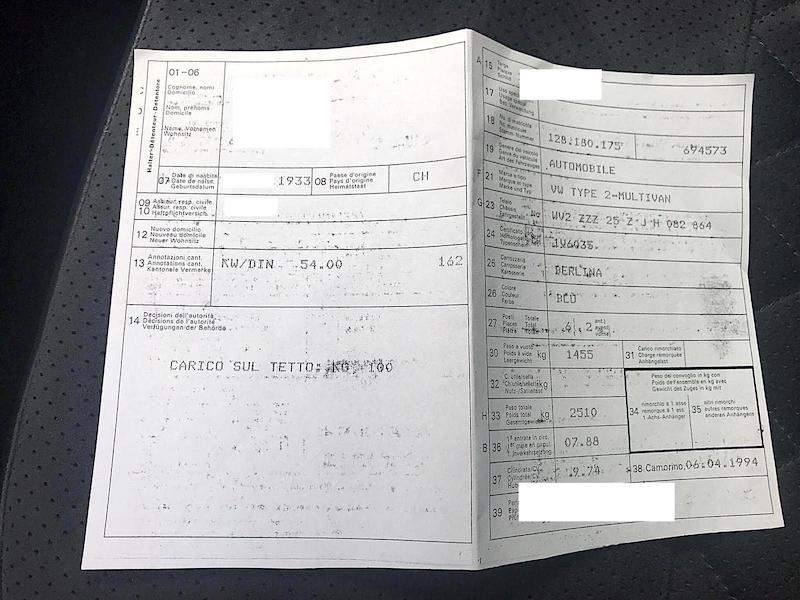 Halter-Détenteur-Detentore
01-06
Cognome, nomi
Domicilio
Nom, prénoms
Domicile
Name, Vornamen
Wohnsitz
07 Data di nascita
Date de naiss.
Geburtsdatum
1933
08 Paese d'origine
Pays d'origine
Heimatstaat
CH
09 Assicur. resp. civile
10 Ass. resp. civile
Haftpflichtversich.
12 Nuovo domicilio
Nouveau domicile
Neuer Wohnsitz
13 Annotazioni cant.
Annotations cant.
Kantonale Vermerke
KW/DIN 54.00 162
14 Decisioni dell'autorità
Décisions de l'autorité
Verfügungen der Behörde
CARICO SUL TETTO: KG 100
A 15 Targa
Plaque
Schild
17 Uso speciale
Usage spécial
Bes. Verwendung
18 No. di matricola
No. matricule
Stamm. Nummer
128.180.175 694573
19 Genere del veicolo
Genre du véhicule
Art des Fahrzeuges
AUTOMOBILE
F 21 Marca e tipo
Marque et type
Marke und Typ
VW TYPE 2-MULTIVAN
G 23 Telaio
Châssis No
Fahrgestell
WV2 ZZZ 25 Z J H 082 864
24
25 Carrozzeria
Carrosserie
Karosserie
BERLINA
26 Colore
Couleur
Farbe
BLÙ
27 Posti Totale
Places Total
Plätze Total
30 Peso a vuoto
Poids à vide
Leergewicht
kg 1455
31 Carico rimorchiato
Charge remorquée
Anhängelast
32 kg
Peso del convoglio in kg con
Poids de l'ensemble en kg avec
Gewicht des Zuges in kg mit
34 rimorchio a 1 asse
remorque à 1 ess.
1-Achs-Anhänger
35 altri rimorchi
autres remorques
anderen Anhängern
H 33 Peso totale
Poids total
Gesamtgewicht
kg 2510
B 36 07.88
37 Cilindrata/CV
Cylindrée/CV
9.74
38 Camorino, 06.04.1994
39